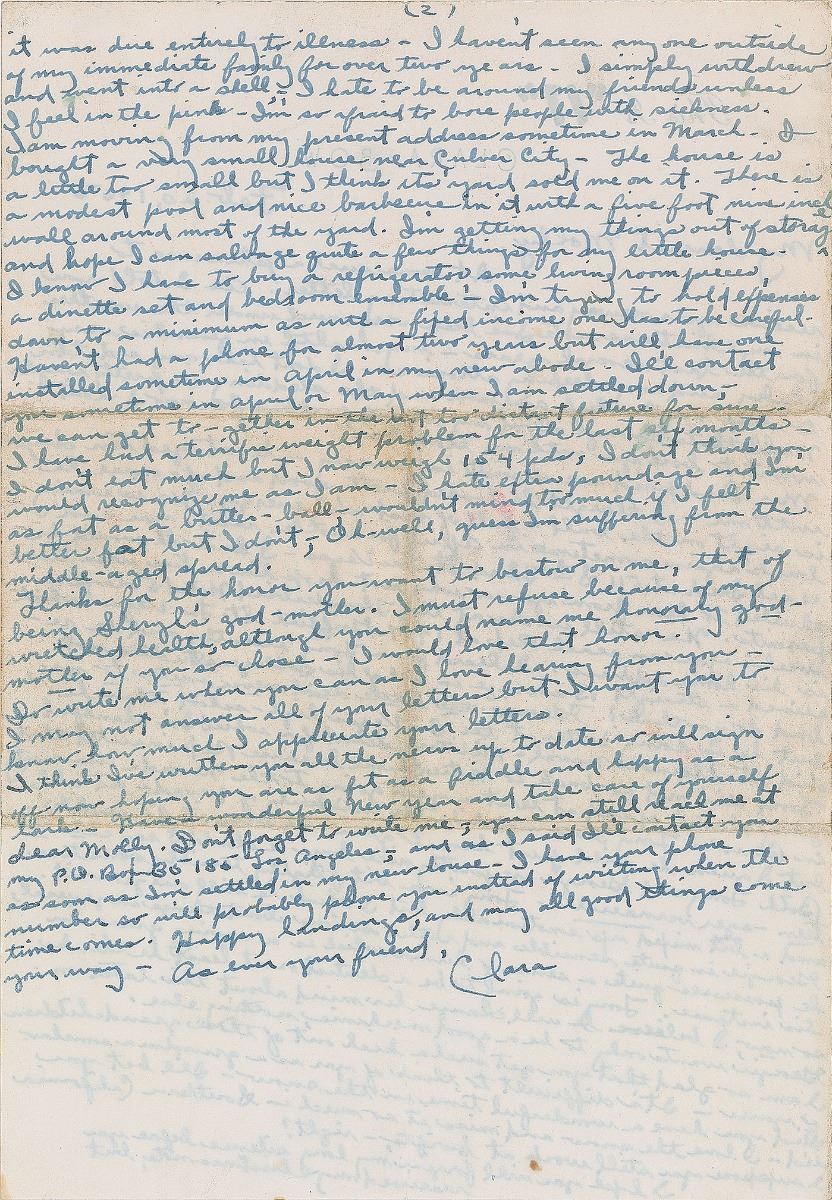 (2)
it was due entirely to illness - I haven't seen anyone outside
of my immediate family for over two years - I simply withdrew
and went into a shell - I hate to be around my friends unless
I feel in the pink - I'm so afraid to bore people with sickness.
I am moving from my present address sometime in March - I
bought a very small house near Culver City - The house is
a little too small but I think its yard sold me on it. There is
a modest pool and nice barbecue in it with a five foot nine inch
wall around most of the yard. I'm getting my things out of storage
and hope I can salvage quite a few things for my little house -
I know I have to buy a refrigerator some living room pieces,
a dinette set and bedroom ensemble - I'm trying to hold expenses
down to a minimum as with a fixed income one has to be careful.
Haven't had a phone for almost two years but will have one
installed sometime in April in my new abode. I'll contact
you sometime in April or May when I am settled down -
we can get to-gether in the not too distant future for sure -
I have had a terrific weight problem for the last six months -
I don't eat much but I now weigh 154 pds, I don't think you
would recognize me as I am - I hate extra poundage and I'm
as fat as a butter-ball - wouldn't mind too much if I felt
better fat but I don't - Oh-well, guess I'm suffering from the
middle-aged spread.
Thanks for the honor you want to bestow on me, that of
being Sheryl's god-mother. I must refuse because of my
wretched health, although you could name me honorary god-
mother if you so chose - I would love that honor.
Do write me when you can as I love hearing from you -
I may not answer all of your letters but I want you to
know how much I appreciate your letters.
I think I've written you all the news up to date so will sign
off now hoping you are as fit as a fiddle and happy as a
lark - Have a wonderful New Year and take care of yourself
dear Molly. Don't forget to write me, you can still reach me at
my P.O. Box 35185 Los Angeles - and as I said I'll contact you
as soon as I'm settled in my new house - I have your phone
number so will probably phone you instead of writing when the
time comes. Happy landings, and may all good things come
your way - As ever your friend,
Clara